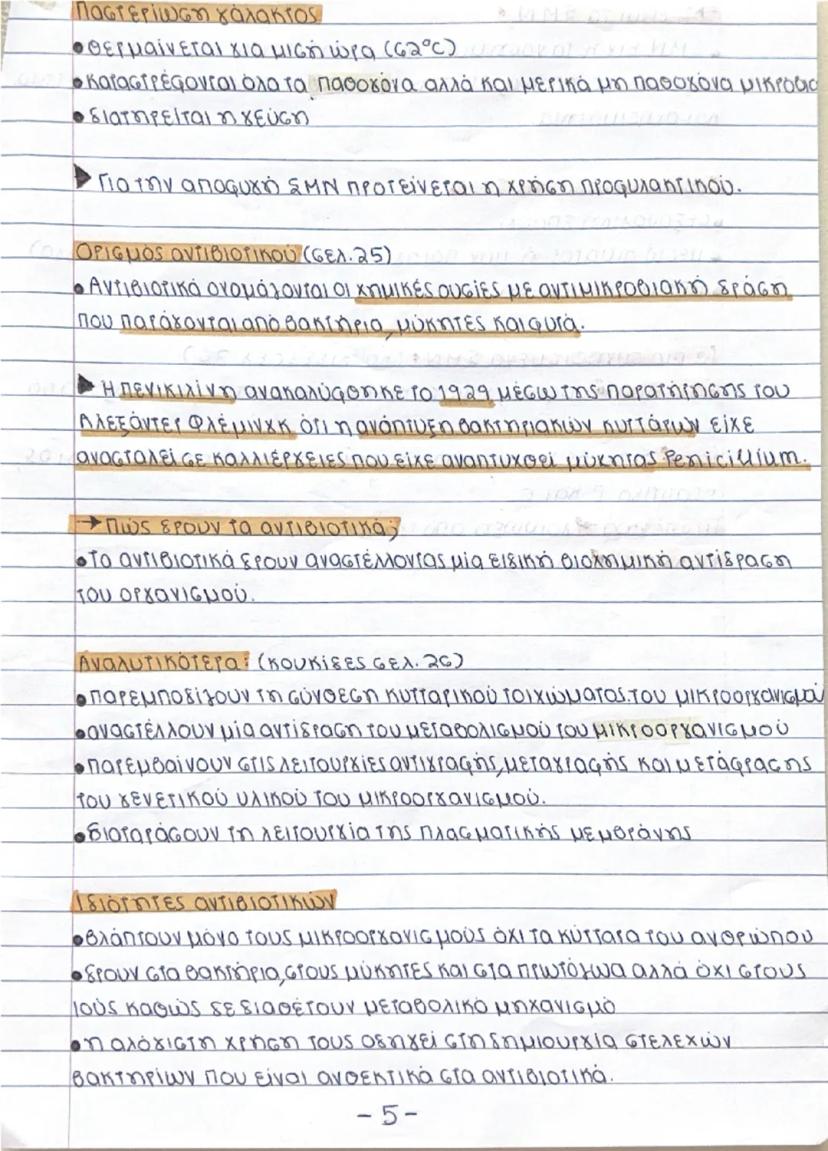 Παστερίωση γάλακτος
• θερμαίνεται για μισή ώρα (62°C)
• καταστρέφονται όλα τα παθογόνα αλλά και μερικά μη παθογόνα μικρόβια
• διατηρείται η γεύση
➤ Για την αποφυγή ΣΜΝ προτείνεται η χρήση προφυλακτικού.
Ορισμός αντιβιοτικού (σελ.25)
• Αντιβιοτικά ονομάζονται οι χημικές ουσίες με αντιμικροβιακή δράση
που παράγονται από βακτήρια, μύκητες και φυτά.
➤ Η πενικιλίνη ανακαλύφθηκε το 1929 μέσω της παρατήρησης του
Αλεξάντερ Φλέμινγκ ότι η ανάπτυξη βακτηριακών κυττάρων είχε
ανασταλεί σε καλλιέργειες που είχε αναπτυχθεί μύκητας Penicillium.
→ Πώς δρουν τα αντιβιοτικά;
• Τα αντιβιοτικά δρουν αναστέλλοντας μία ειδική βιοχημική αντίδραση
του οργανισμού.
Αναλυτικότερα: (κουκίδες σελ. 26)
• παρεμποδίζουν τη σύνθεση κυτταρικού τοιχώματος του μικροοργανισμού
• αναστέλλουν μία αντίδραση του μεταβολισμού του μικροοργανισμού
• παρεμβαίνουν στις λειτουργίες αντιγραφής, μεταγραφής και μετάφρασης
του γενετικού υλικού του μικροοργανισμού.
• διαταράσουν τη λειτουργία της πλασματικής μεμβράνης
Ιδιότητες αντιβιοτικών
• βλάπτουν μόνο τους μικροοργανισμούς όχι τα κύτταρα του ανθρώπου
• δρουν στα βακτήρια, στους μύκητες και στα πρωτόζωα αλλά όχι στους
ιούς καθώς δε διαθέτουν μεταβολικό μηχανισμό
• η αλόγιστη χρήση τους οδηγεί στη δημιουργία στελεχών
βακτηρίων που είναι ανθεκτικά στα αντιβιοτικά.
- 5 -